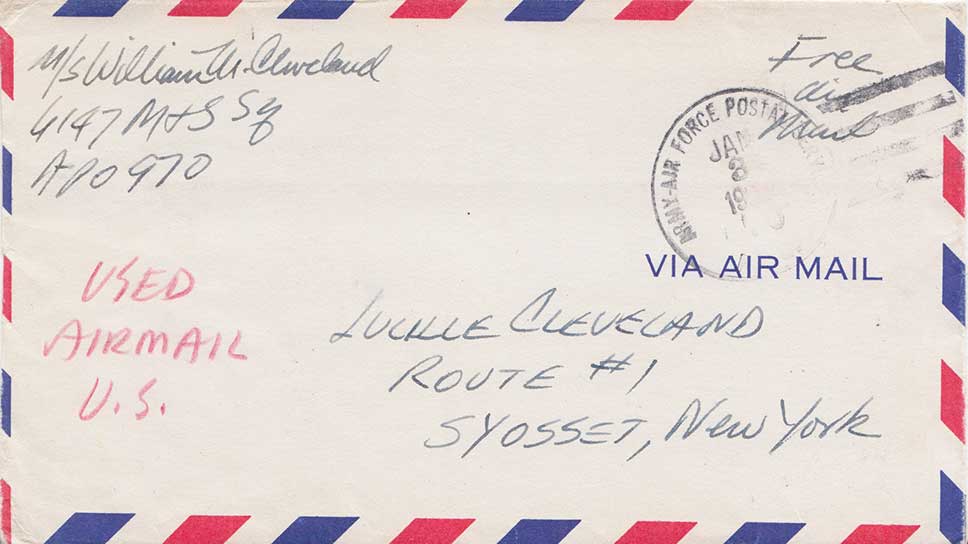 M/S William M. Cleveland
6147 M+S Sq
APO 970
Free
air
Mail
ARMY-AIR FORCE POSTAL
JAN
3
VIA AIR MAIL
USED
AIRMAIL
U.S.
LUCILLE CLEVELAND
ROUTE #1
SYOSSET, New York